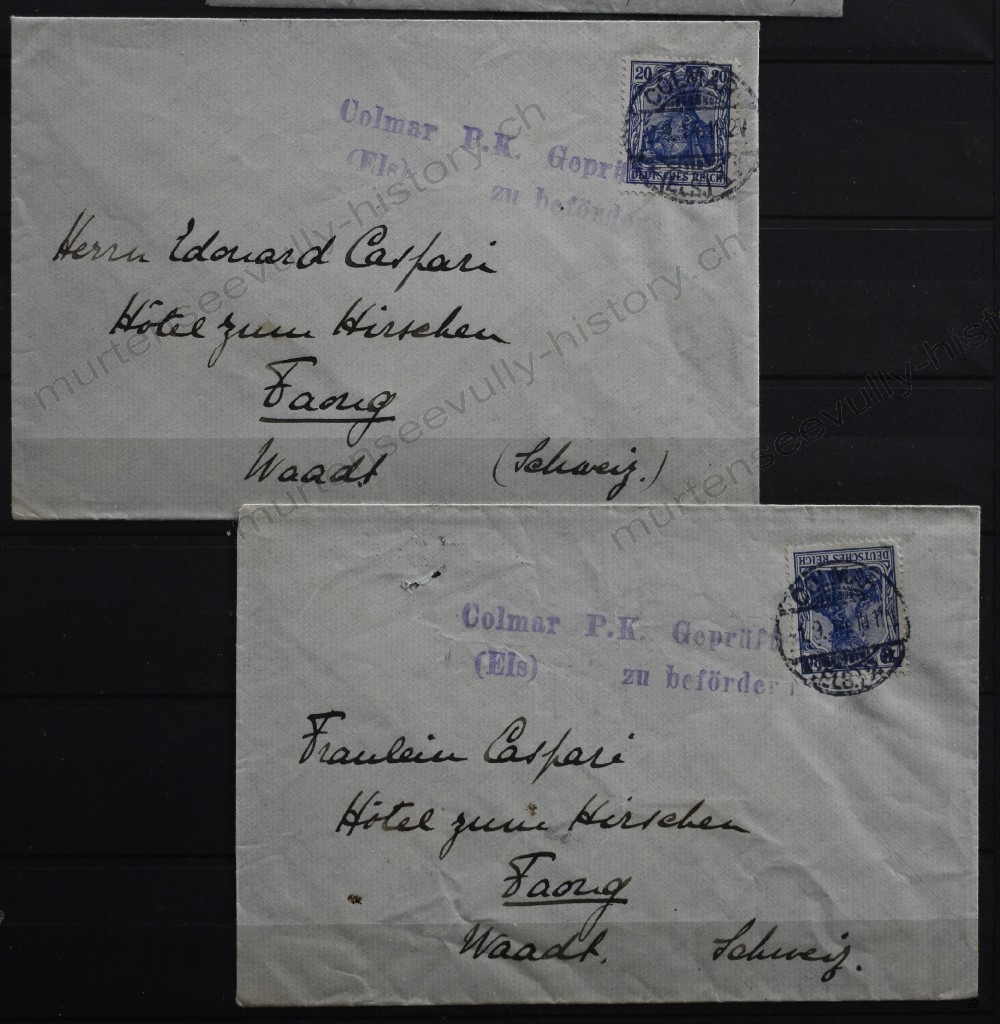 20 20
DEUTSCHES REICH
COLMAR
(ELS.)
Colmar P.K. Geprüf
(Els) zu beförder
Herrn Edouard Caspari
Hôtel zum Hirschen
Faoug
Waadt (Schweiz.)
murtenseevully-history.ch
murtenseevully-history.ch
murtenseevully-history
DEUTSCHES REICH
COLMAR
(ELS.)
Colmar P.K. Geprüft
(Els) zu befördern
Fraulein Caspari
Hôtel zum Hirschen
Faoug
Waadt. Schweiz.